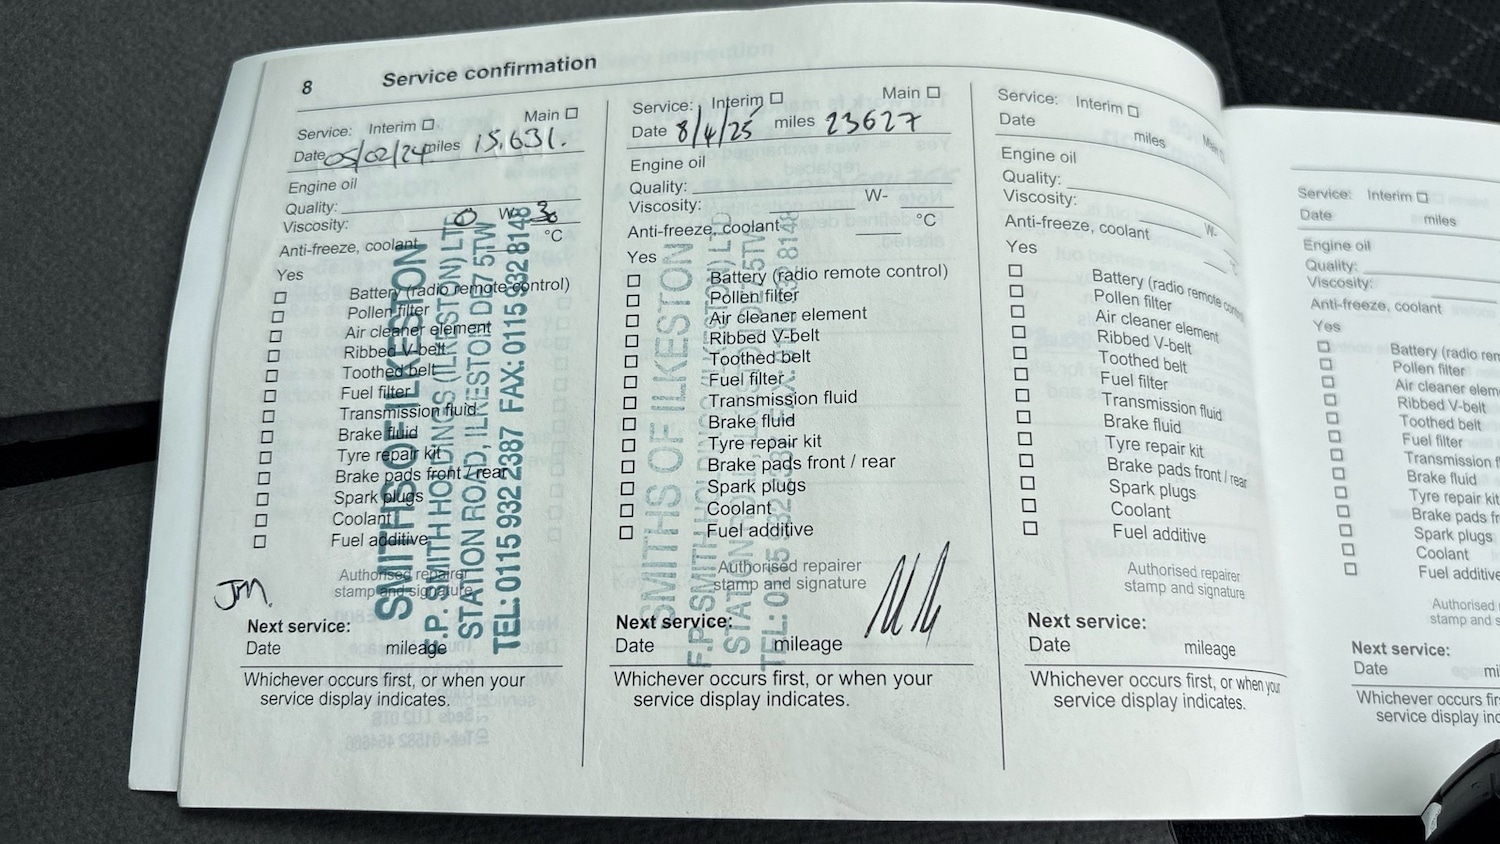 8 Service confirmation
Service: Interim Main
Date 05/02/24 miles 15,631.
Engine oil
Quality:
Viscosity: 0 W- 30
Anti-freeze, coolant °C
Yes
Battery (radio remote control)
Pollen filter
Air cleaner element
Ribbed V-belt
Toothed belt
Fuel filter
Transmission fluid
Brake fluid
Tyre repair kit
Brake pads front / rear
Spark plugs
Coolant
Fuel additive
Authorised repairer
stamp and signature
JM.
SMITHS OF ILKESTON
F.P. SMITH HOLDINGS (ILKESTON) LTD
STATION ROAD, ILKESTON DE7 5TW
TEL: 0115 932 2387 FAX: 0115 932 8148
Next service:
Date mileage
Whichever occurs first, or when your
service display indicates.
Service: Interim Main
Date 8/4/25 miles 23627
Engine oil
Quality:
Viscosity: W-
Anti-freeze, coolant °C
Yes
Battery (radio remote control)
Pollen filter
Air cleaner element
Ribbed V-belt
Toothed belt
Fuel filter
Transmission fluid
Brake fluid
Tyre repair kit
Brake pads front / rear
Spark plugs
Coolant
Fuel additive
Authorised repairer
stamp and signature
SMITHS OF ILKESTON
Next service:
Date mileage
Whichever occurs first, or when your
service display indicates.
Service: Interim Main
Date miles
Engine oil
Quality:
Viscosity: W-
Anti-freeze, coolant °C
Yes
Battery (radio remote
Pollen filter
Air cleaner element
Ribbed V-belt
Toothed belt
Fuel filter
Transmission fluid
Brake fluid
Tyre repair kit
Brake pads front / rear
Spark plugs
Coolant
Fuel additive
Authorised repairer
stamp and signature
Next service:
Date mileage
Whichever occurs first, or when you
service display indicates.
Service: Interim
Date miles
Engine oil
Quality:
Viscosity:
Anti-freeze, coolant
Yes
Battery (radio rem
Pollen filter
Air cleaner elem
Ribbed V-belt
Toothed belt
Fuel filter
Transmission f
Brake fluid
Tyre repair kit
Brake pads fr
Spark plugs
Coolant
Fuel additive
Authorised
stamp and s
Next service:
Date mi
Whichever occurs fir
service display inc